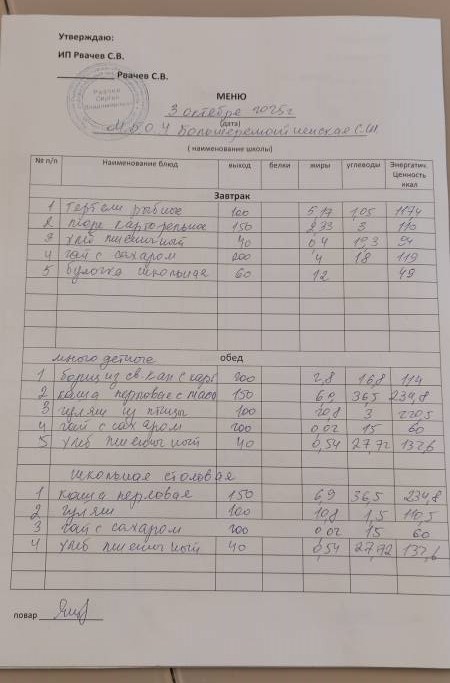 Утверждаю:
ИП Рвачев С.В.
Рвачев С.В.
Рвачев
Сергей
Владимирович
МЕНЮ
3 октября 2025г
(дата)
М.Б.О.У Большеремонтненская СШ
( наименование школы)
№ п/п Наименование блюд выход белки жиры углеводы Энергатич. Ценность ккал
Завтрак
1 Тефтели рыбные 100 5,17 1,05 1174
2 пюре картофельное 150 2,33 3 110
3 хлеб пшеничный 40 0,4 19,3 94
4 чай с сахаром 200 4 18 119
5 булочка школьная 60 12 49
многодетные обед
1 борщ из св.кап с карт 200 2,8 16,8 114
2 каша перловая с масл 150 6,9 36,5 234,8
3 гуляш из птицы 100 10,8 3 220,5
4 чай с сахаром 200 0,02 15 60
5 хлеб пшеничный 40 0,54 27,72 132,6
школьная столовая
1 каша перловая 150 6,9 36,5 234,8
2 гуляш 100 10,8 1,5 110,5
3 чай с сахаром 200 0,02 15 60
4 хлеб пшеничный 40 0,54 27,72 132,6
повар